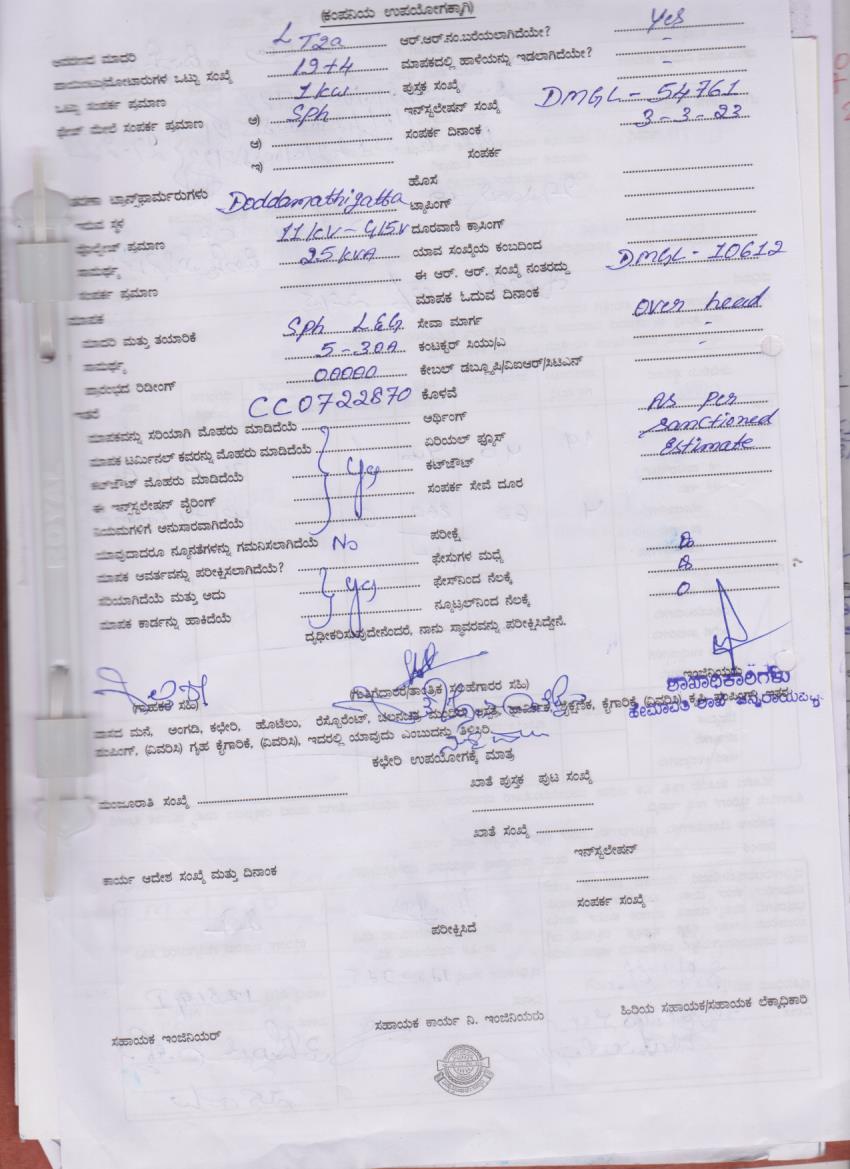 (ಕಂಪನಿಯ ಉಪಯೋಗಕ್ಕಾಗಿ)
ಮಾದರಿ LT2a ಆರ್.ಆರ್.ನಂ.ಬರೆಯಲಾಗಿದೆಯೇ? Yes
ಒಟ್ಟು ಸಂಖ್ಯೆ 19+4 ಮಾಪಕದಲ್ಲಿ ಹಾಳೆಯನ್ನು ಇಡಲಾಗಿದೆಯೇ? -
ಒಟ್ಟು ಸಂಪರ್ಕ ಪ್ರಮಾಣ 1 kw ಪುಸ್ತಕ ಸಂಖ್ಯೆ -
ಮೇಲೆ ಸಂಪರ್ಕ ಪ್ರಮಾಣ ಅ) Sph ಇನ್‌ಸ್ಟಲೇಷನ್ ಸಂಖ್ಯೆ DMGL-54761
ಆ) ಸಂಪರ್ಕ ದಿನಾಂಕ 3-3-23
ಇ) ಸಂಪರ್ಕ
ಹೊಸ
ಟ್ರಾನ್ಸ್‌ಫಾರ್ಮರುಗಳು
ಇರುವ ಸ್ಥಳ Doddamathigatta ಟ್ಯಾಪಿಂಗ್
ವೋಲ್ಟೇಜ್ ಪ್ರಮಾಣ 11kV-415V ದೂರವಾಣಿ ಕ್ರಾಸಿಂಗ್
ಸಾಮರ್ಥ್ಯ 25kVA ಯಾವ ಸಂಖ್ಯೆಯ ಕಂಬದಿಂದ
ಸಂಪರ್ಕ ಪ್ರಮಾಣ ಈ ಆರ್. ಆರ್. ಸಂಖ್ಯೆ ನಂತರದ್ದು DMGL-10612
ಮಾಪಕ ಮಾಪಕ ಓದುವ ದಿನಾಂಕ
ಮಾದರಿ ಮತ್ತು ತಯಾರಿಕೆ Sph L&G ಸೇವಾ ಮಾರ್ಗ Over head
ಸಾಮರ್ಥ್ಯ 5-30A ಕಂಟಕ್ಟರ್ ಸಿಯು/ಎ -
ಪ್ರಾರಂಭದ ರಿಡೀಂಗ್ 00000 ಕೇಬಲ್ ಡಬ್ಲ್ಯೂಪಿ/ವಿಐಆರ್/ಸಿಟಿಎನ್ -
ಇತರೆ CC0722870 ಕೊಳವೆ
ಮಾಪಕವನ್ನು ಸರಿಯಾಗಿ ಮೊಹರು ಮಾಡಿದೆಯೆ ಅರ್ಥಿಂಗ್ As per
ಮಾಪಕ ಟರ್ಮಿನಲ್ ಕವರನ್ನು ಮೊಹರು ಮಾಡಿದೆಯೆ ಏರಿಯಲ್ ಫ್ಯೂಸ್ Sanctioned
ಕಟ್‌ಔಟ್ ಮೊಹರು ಮಾಡಿದೆಯೆ ಕಟ್‌ಔಟ್ Estimate
ಈ ಇನ್‌ಸ್ಟಲೇಷನ್ ವೈರಿಂಗ್ ಸಂಪರ್ಕ ಸೇವೆ ದೂರ
ನಿಯಮಗಳಿಗೆ ಅನುಸಾರವಾಗಿದೆಯೆ
ಯಾವುದಾದರೂ ನ್ಯೂನತೆಗಳನ್ನು ಗಮನಿಸಲಾಗಿದೆಯೆ No ಪರೀಕ್ಷೆ
ಮಾಪಕ ಆವರ್ತವನ್ನು ಪರೀಕ್ಷಿಸಲಾಗಿದೆಯೆ? ಫೇಸುಗಳ ಮಧ್ಯೆ
ಸರಿಯಾಗಿದೆಯೆ ಮತ್ತು ಅದು ಫೇಸ್‌ನಿಂದ ನೆಲಕ್ಕೆ
ಮಾಪಕ ಕಾರ್ಡನ್ನು ಹಾಕಿದೆಯೆ ನ್ಯೂಟ್ರಲ್‌ನಿಂದ ನೆಲಕ್ಕೆ 0
ದೃಢೀಕರಿಸುವುದೇನೆಂದರೆ, ನಾನು ಸ್ಥಾವರವನ್ನು ಪರೀಕ್ಷಿಸಿದ್ದೇನೆ.
(ಗ್ರಾಹಕರ ಸಹಿ) (ಗುತ್ತಿಗೆದಾರರ/ತಾಂತ್ರಿಕ ಸಲಹೆಗಾರರ ಸಹಿ) ಇಂಜಿನಿಯರು
ಶಾಖಾಧಿಕಾರಿಗಳು
ವಾಸದ ಮನೆ, ಅಂಗಡಿ, ಕಛೇರಿ, ಹೊಟೆಲು, ರೆಸ್ಟೊರೆಂಟ್, ಕೈಗಾರಿಕೆ, (ವಿವರಿಸಿ)
ಪಂಪಿಂಗ್, (ವಿವರಿಸಿ) ಗೃಹ ಕೈಗಾರಿಕೆ, (ವಿವರಿಸಿ), ಇದರಲ್ಲಿ ಯಾವುದು ಎಂಬುದನ್ನು ತಿಳಿಸಿರಿ
ಕಛೇರಿ ಉಪಯೋಗಕ್ಕೆ ಮಾತ್ರ
ಮಂಜೂರಾತಿ ಸಂಖ್ಯೆ ಖಾತೆ ಪುಸ್ತಕ ಪುಟ ಸಂಖ್ಯೆ
ಖಾತೆ ಸಂಖ್ಯೆ
ಇನ್‌ಸ್ಟಲೇಷನ್
ಕಾರ್ಯ ಆದೇಶ ಸಂಖ್ಯೆ ಮತ್ತು ದಿನಾಂಕ
ಸಂಪರ್ಕ ಸಂಖ್ಯೆ
ಪರೀಕ್ಷಿಸಿದೆ
ಸಹಾಯಕ ಇಂಜಿನಿಯರ್ ಸಹಾಯಕ ಕಾರ್ಯ ನಿ. ಇಂಜಿನಿಯರು ಹಿರಿಯ ಸಹಾಯಕ/ಸಹಾಯಕ ಲೆಕ್ಕಾಧಿಕಾರಿ